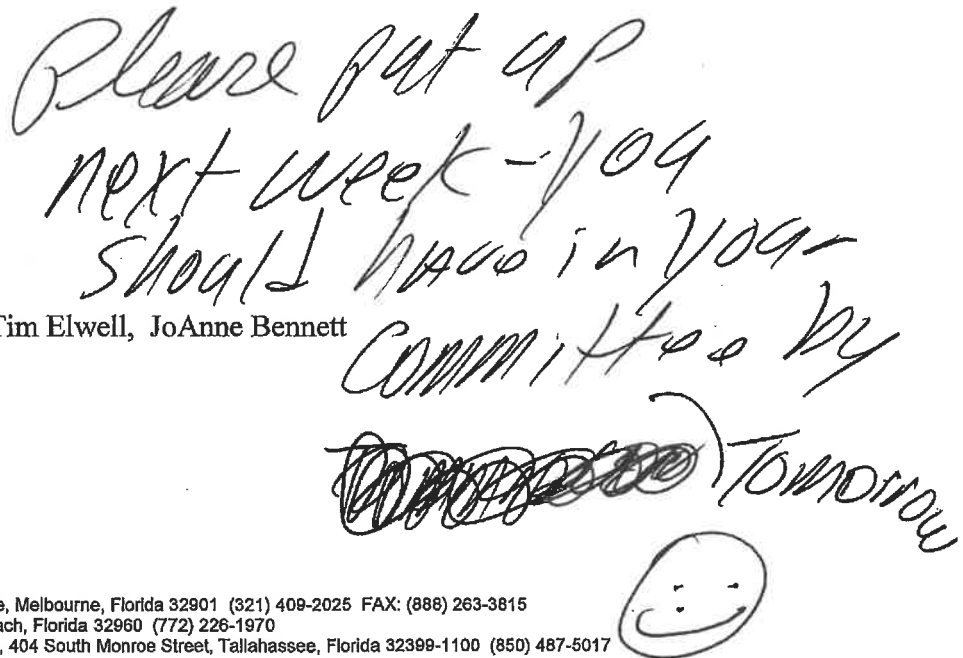 Please put up
next week - you
should have in your
Tim Elwell, JoAnne Bennett
Committee by
Tomorrow
e, Melbourne, Florida 32901 (321) 409-2025 FAX: (888) 263-3815
ach, Florida 32960 (772) 226-1970
, 404 South Monroe Street, Tallahassee, Florida 32399-1100 (850) 487-5017